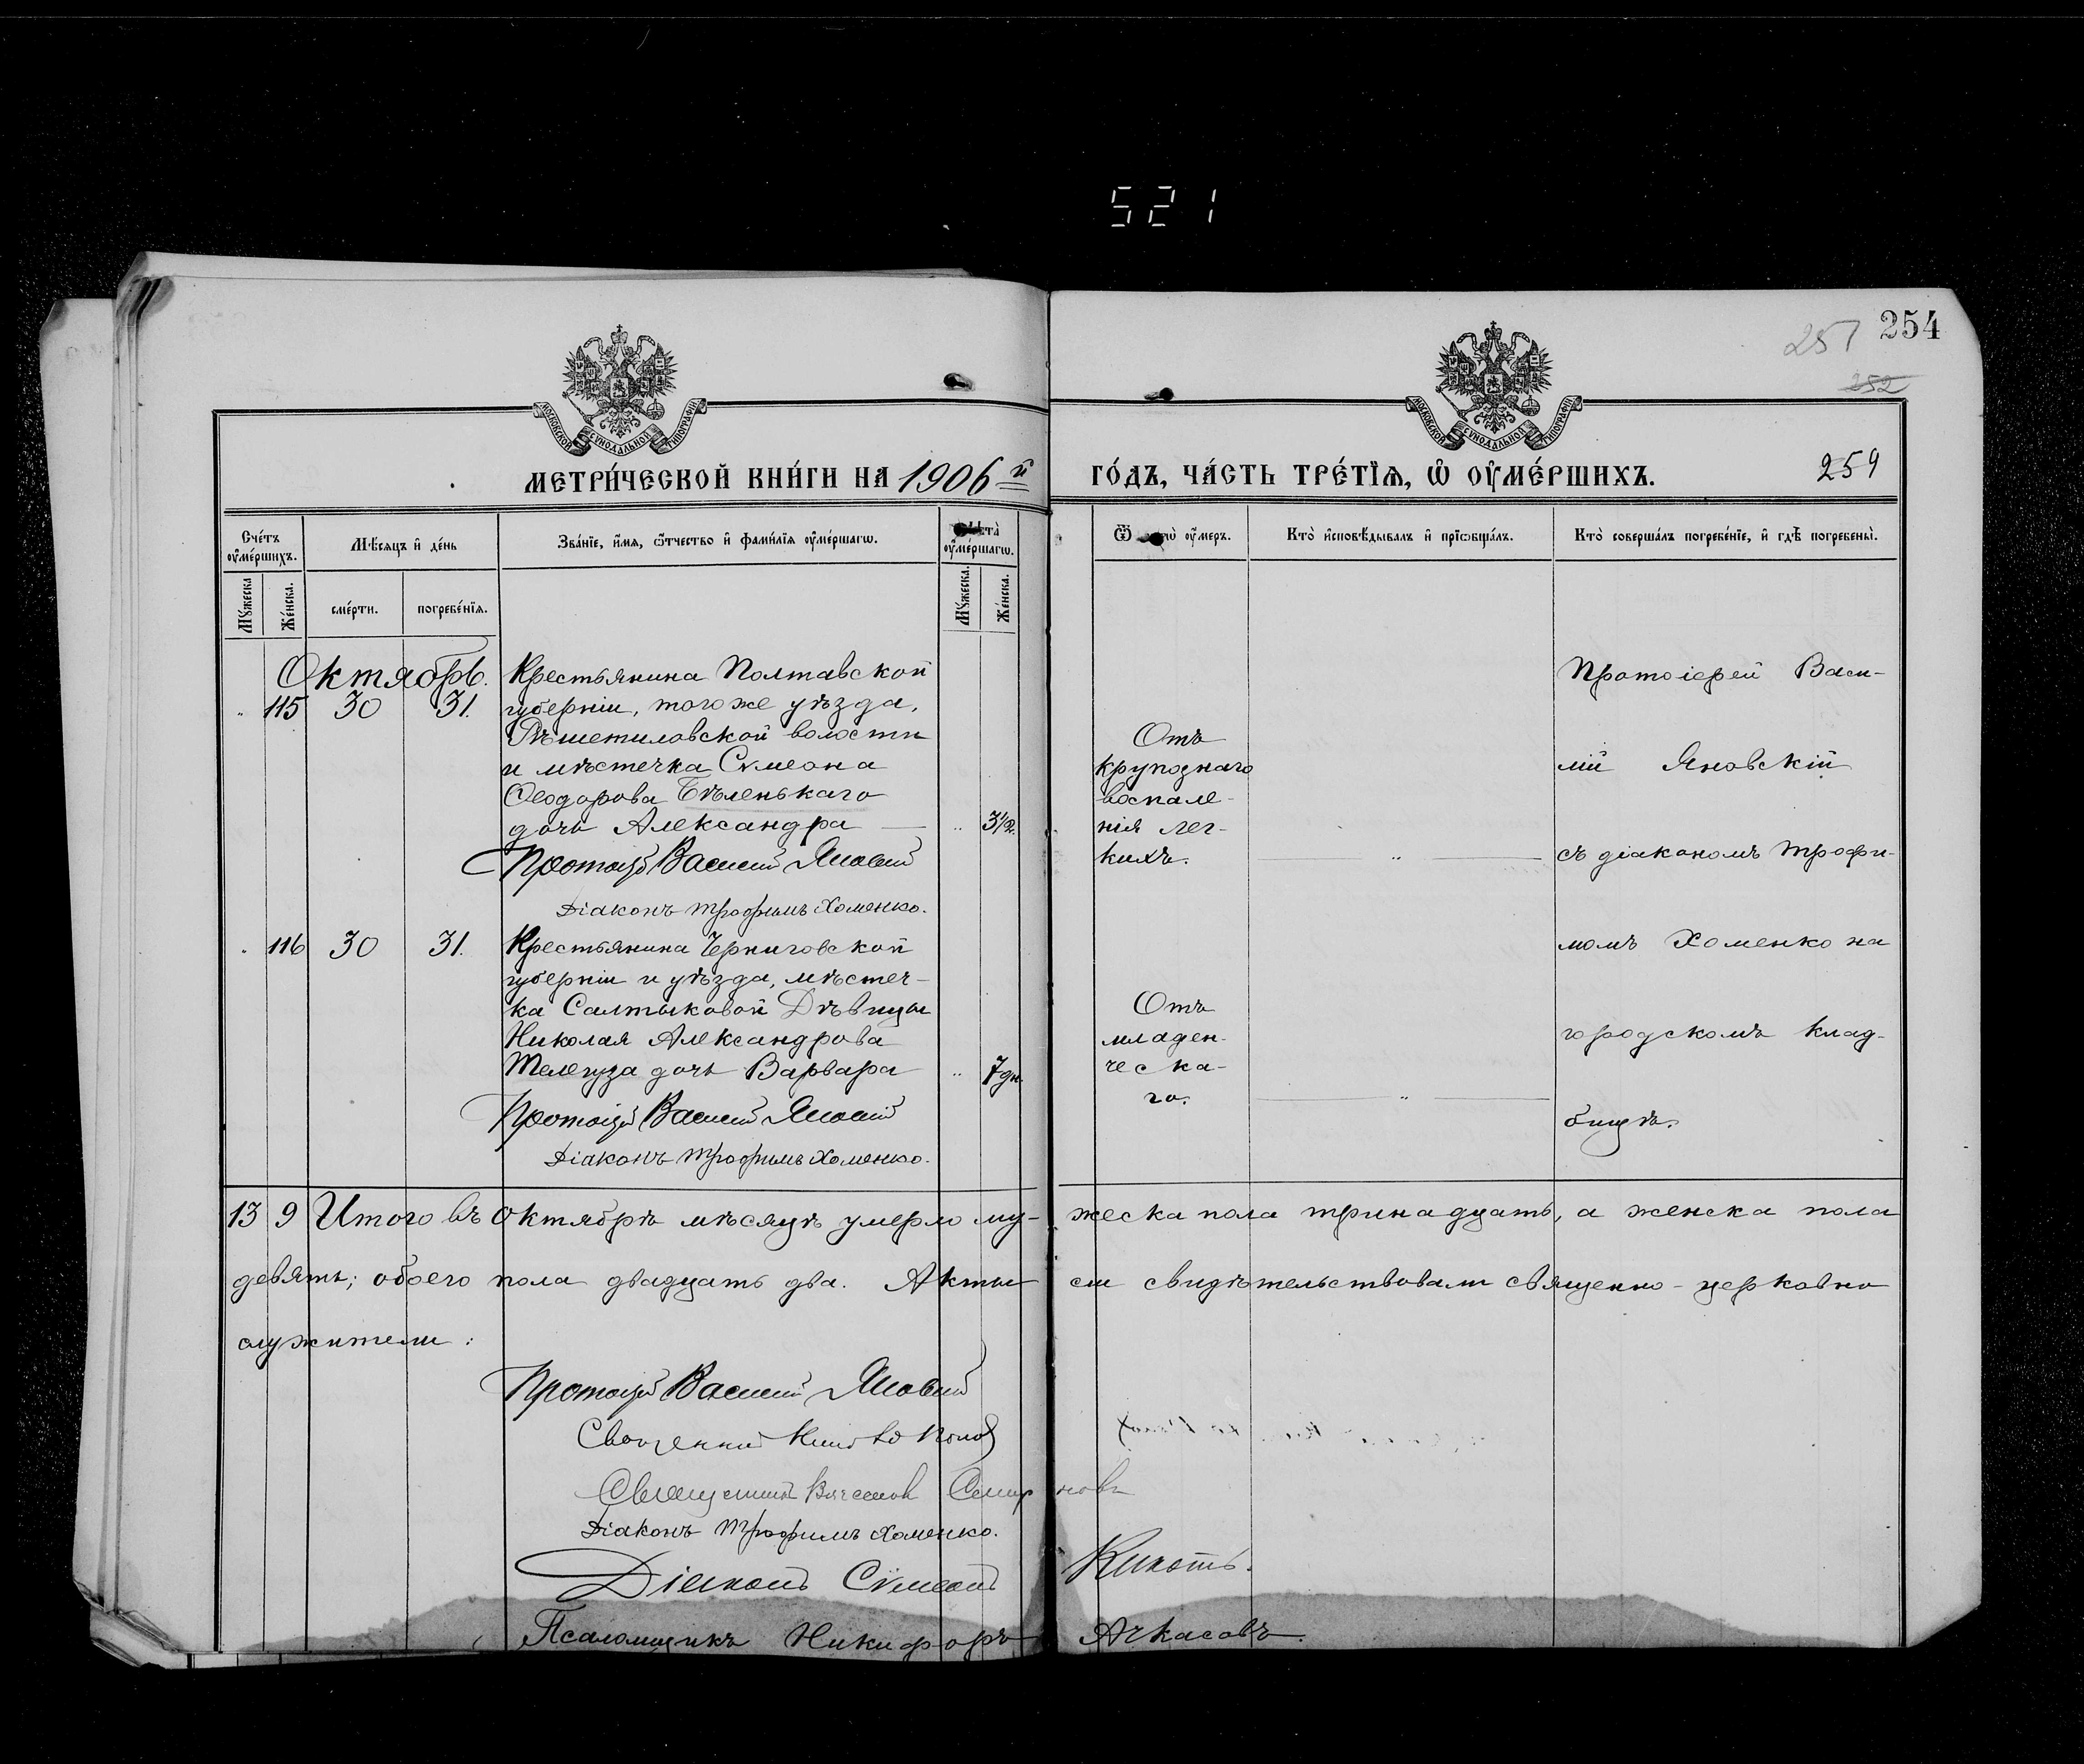 521
254
257
252
МОСКОВСКОЙ СУНОДАЛЬНОЙ ТИПОГРАФІИ
МОСКОВСКОЙ СУНОДАЛЬНОЙ ТИПОГРАФІИ
МЕТРИ́ЧЕСКОЙ КНИ́ГИ НА 1906й ГО́ДЪ, ЧА́СТЬ ТРЕ́ТІѦ, Ѡ҆ ОУ҆МЕ́РШИХЪ.
259
Сче́тъ оу҆ме́ршихъ.
Мѣ́сѧцъ и҆ де́нь
Зва́нїе, и҆́мѧ, ѻ҆́тчество и҆ фами́лїѧ оу҆ме́ршагѡ.
оу҆ме́ршагѡ.
Ѿ оу҆́меръ.
Кто̀ и҆сповѣ́дывалъ и҆ прїѡбща́лъ.
Кто̀ соверша́лъ погребе́нїе, и҆ гдѣ̀ погребены̀.
Мꙋ́жеска
Же́нска.
сме́рти.
погребе́нїѧ.
Мꙋ́жеска.
Же́нска.
Октябрь.
" 115 30 31.
Крестьянина Полтавской
губерніи, того же уѣзда,
Рѣшетиловской волости
и мѣстечка Сѵмеона
Ѳеодорова Бѣленькаго
дочь Александра — " 3½.
Протоіерей Василій Яновскій
Діаконъ Трофимъ Хоменко.
Отъ
крупознаго
воспале-
нія лег-
кихъ.
"
Протоіерей Васи-
лій Яновскій
съ діакономъ Трофи-
момъ Хоменко на
городскомъ клад-
бищѣ.
" 116 30 31.
Крестьянина Черниговской
губерніи и уѣзда, мѣстеч-
ка Салтыковой Дѣвицы
Николая Александрова
Телегуза дочь Варвара " 7 дн.
Протоіерей Василій Яновскій
Діаконъ Трофимъ Хоменко.
Отъ
младен-
ческа-
го.
"
13 9 Итого въ октябрѣ мѣсяцѣ умерло му-жеска пола тринадцать, а женска пола
девять; обоего пола двадцать два. Акты сіи свидѣтельствовали священно-церковно
служители:
Протоіерей Василій Яновскій
Священникъ Попов
Священникъ Вячеслав Смирновъ
Діаконъ Трофимъ Хоменко.
Діаконъ Сѵмеонъ Кикоть.
Псаломщикъ Никифоръ Ачкасовъ.